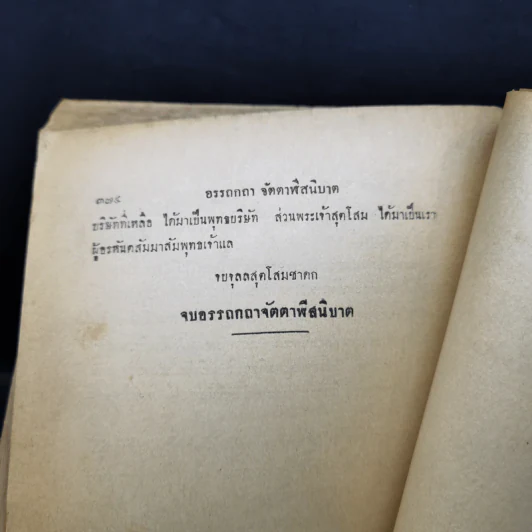 ๓๗๔ อรรถกถา จัตตาฬีสนิบาต
บริษัทที่เหลือ ได้มาเป็นพุทธบริษัท ส่วนพระเจ้าสุตโสม ได้มาเป็นเรา
ผู้อรหันตสัมมาสัมพุทธเจ้าแล
จบจุลลสุตโสมชาดก
จบอรรถกถาจัตตาฬีสนิบาต